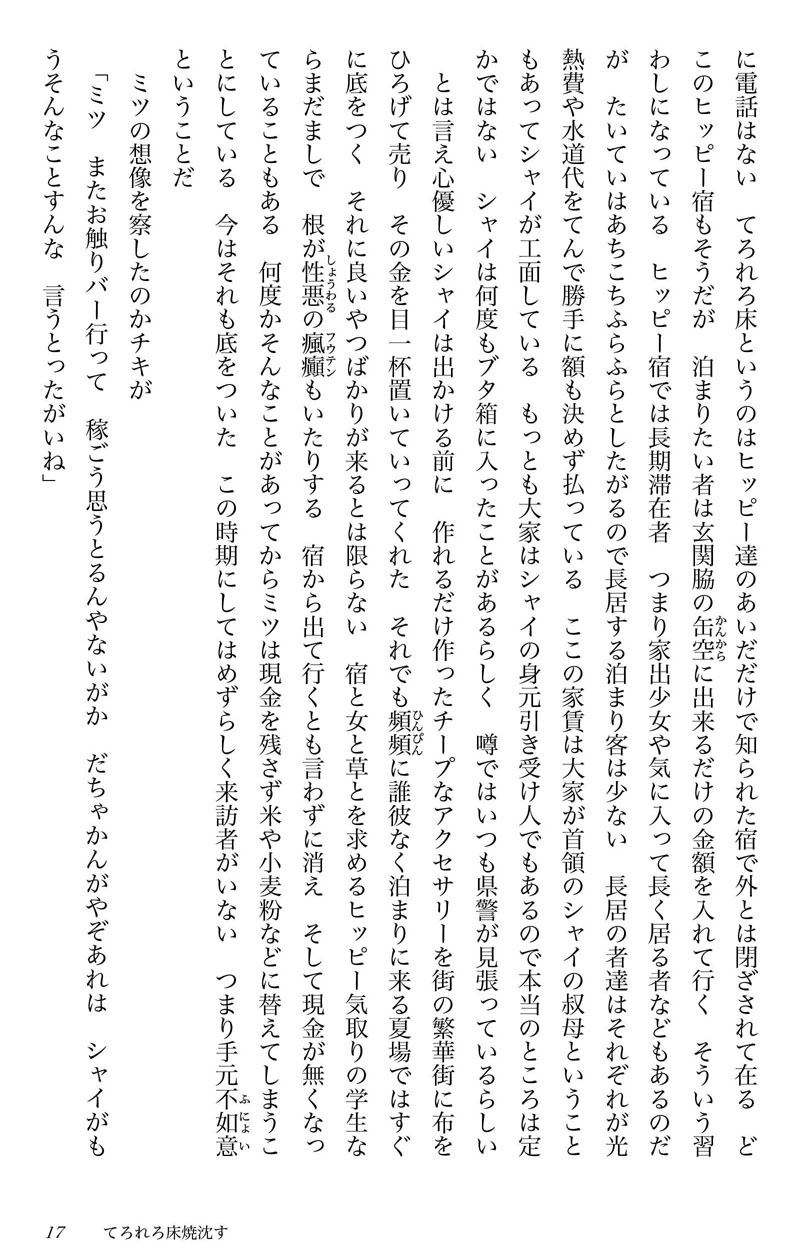 に電話はない　てろれろ床というのはヒッピー達のあいだだけで知られた宿で外とは閉ざされて在る　ど
このヒッピー宿もそうだが　泊まりたい者は玄関脇の缶空に出来るだけの金額を入れて行く　そういう習
かんから
わしになっている　ヒッピー宿では長期滞在者　つまり家出少女や気に入って長く居る者などもあるのだ
が　たいていはあちこちふらふらとしたがるので長居する泊まり客は少ない　長居の者達はそれぞれが光
熱費や水道代をてんで勝手に額も決めず払っている　ここの家賃は大家が首領のシャイの叔母ということ
もあってシャイが工面している　もっとも大家はシャイの身元引き受け人でもあるので本当のところは定
かではない　シャイは何度もブタ箱に入ったことがあるらしく　噂ではいつも県警が見張っているらしい
　とは言え心優しいシャイは出かける前に　作れるだけ作ったチープなアクセサリーを街の繁華街に布を
ひろげて売り　その金を目一杯置いていってくれた　それでも頻頻に誰彼なく泊まりに来る夏場ではすぐ
ひんぴん
に底をつく　それに良いやつばかりが来るとは限らない　宿と女と草とを求めるヒッピー気取りの学生な
らまだまし で　根が性悪の瘋癲もいたりする　宿から出て行くとも言わずに消え　そして現金が無くなっ
しょうわる
フウテン
ていることもある　何度かそんなことがあってからミツは現金を残さず米や小麦粉などに替えてしまうこ
とにしている　今はそれも底をついた　この時期にしてはめずらしく来訪者がいない　つまり手元不如意
ふにょい
ということだ
　ミツの想像を察したのかチキが
「ミツ　またお触りバー行って　稼ごう思うとるんやないがか　だちゃかんがやぞあれは　シャイがも
うそんなことすんな　言うとったがいね」
17　てろれろ床焼沈す